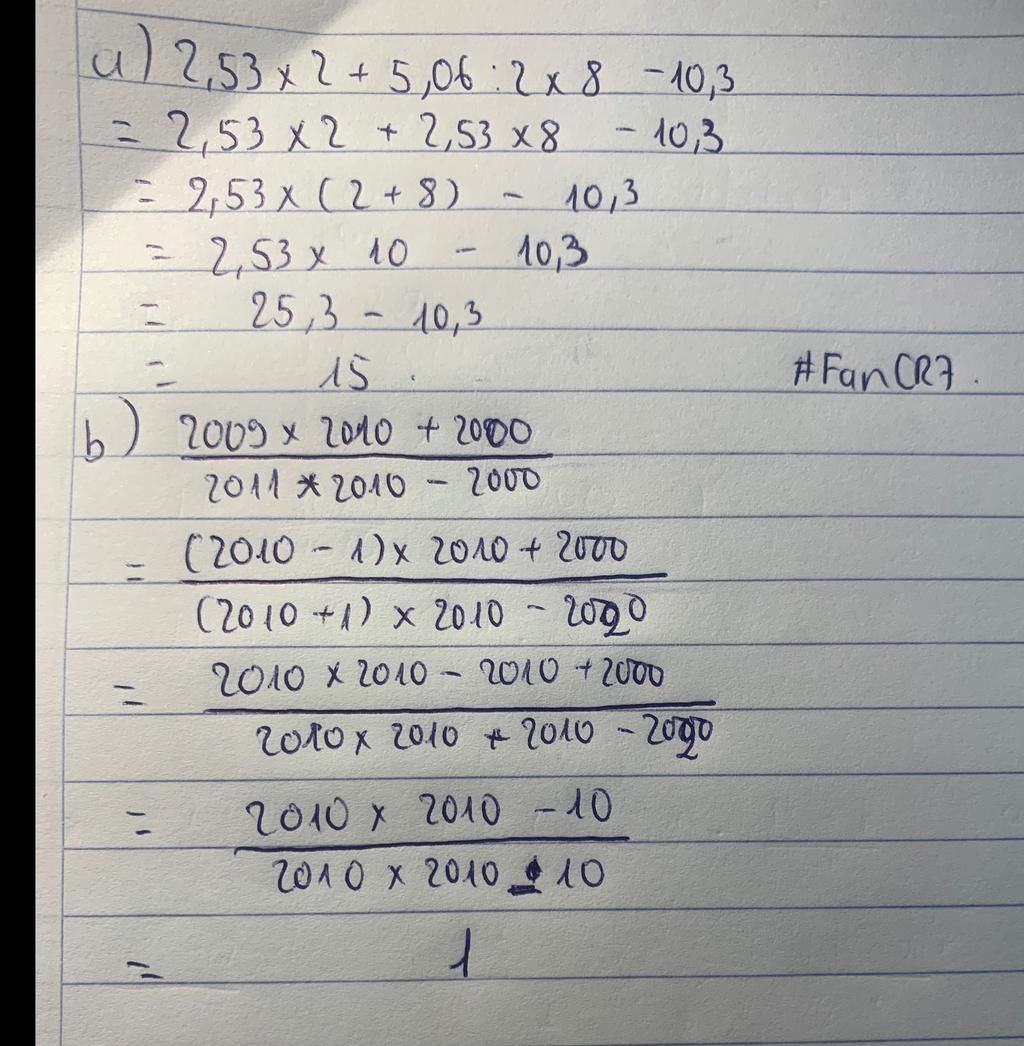 a) 2,53 x 2 + 5,06 : 2 x 8 - 10,3
= 2,53 x 2 + 2,53 x 8 - 10,3
= 2,53 x (2 + 8) - 10,3
= 2,53 x 10 - 10,3
= 25,3 - 10,3
= 15 .
#FanCR7.
b) 2009 x 2010 + 2000
2011 x 2010 - 2000
= (2010 - 1) x 2010 + 2000
(2010 + 1) x 2010 -
= 2010 x 2010 - 2010 + 2000
2010 x 2010 + 2010 -
= 2010 x 2010 - 10
2010 x 2010 10
= 1